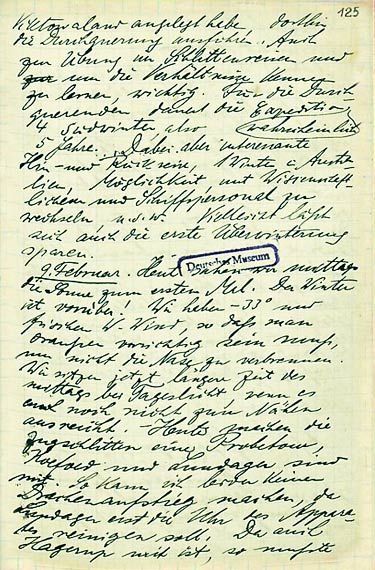 125
Viktorialand angelegt habe dorthin
die Durchquerung ausführen. Auch
zur Übung im Schlittenreisen und
um die Verhältnisse kennen
zu lernen, wichtig. Für die Durch-
querenden dauert die Expedition
4 Südwinter also wahrscheinlich
5 Jahre. Dabei aber interessante
Hin- und Rückreise, 1 Winter i. Austra-
lien, Möglichkeit, mit Wissenschaft-
lichem und Schiffspersonal zu
wechseln u.s.w. Vielleicht läßt
sich auch die erste Überwinterung
sparen.
9. Februar. Heut sahen wir mittags
die Sonne zum ersten Mal. Der Winter
ist vorüber! Wir haben -33° und
frischen W. Wind, so daß man
draußen vorsichtig sein muß,
um nicht die Nase zu verbrennen.
Wir sitzen jetzt längere Zeit des
mittags bei Tageslicht, wenn es
auch noch nicht zum Nähen
ausreicht. - Heute machen die
Zugschlitten eine Probetour,
Koefoed und sind
mit. So kann ich leider keinen
Drachenaufstieg machen, da
erst die Uhr des Appara-
tes reinigen soll. Da auch
Hagerup mit ist, so mußte
Deutsches Museum